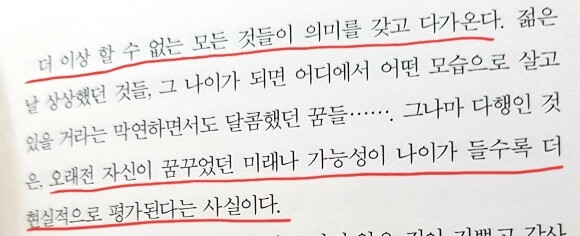 더 이상 할 수 없는 모든 것들이 의미를 갖고 다가온다. 젊은
날 상상했던 것들, 그 나이가 되면 어디에서 어떤 모습으로 살고
있을 거라는 막연하면서도 달콤했던 꿈들……. 그나마 다행인 것
은, 오래전 자신이 꿈꾸었던 미래나 가능성이 나이가 들수록 더
현실적으로 평가된다는 사실이다.